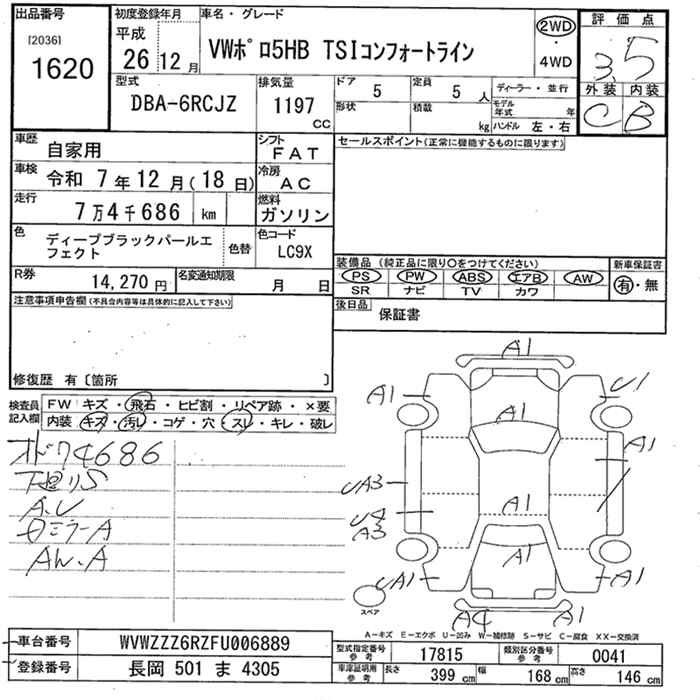 出品番号
[2036]
1620
初度登録年月
平成
26 12 月
車名・グレード
VWポロ5HB TSIコンフォートライン
2WD
・
4WD
評価点
3.5
外装 内装
C B
型式
DBA-6RCJZ
排気量
1197
cc
ドア
5
形状
定員
5 人
積載
kg
ディーラー・並行
モデル年式 年
ハンドル 左・右
車歴
自家用
シフト
FAT
車検
令和 7 年 12 月(18 日)
冷房
AC
走行
7万4千686 km
燃料
ガソリン
色
ディープブラックパールエフェクト
色替
色コード
LC9X
R券
14,270 円
名変通知期限
月 日
セールスポイント(正常に機能するものに限ります)
装備品 (純正品に限り○をつけてください)
PS PW ABS エアB AW
SR ナビ TV カワ
新車保証書
有・無
後日品
保証書
注意事項申告欄(不具合内容等は具体的に記入して下さい)
修復歴 有〔箇所 〕
検査員記入欄
FW キズ・飛石・ヒビ割・リペア跡・×要
内装 キズ・汚レ・コゲ・穴・スレ・キレ・破レ
オド74686
下廻リS
A.U
ドミラーA
AW.A
A1
A1
U1
A1
A1
UA3
U4
A3
A1
A1
UA1
A1
A4
A1
スペア
A-キズ E-エクボ U-凹み W-補修跡 S-サビ C-腐食 XX-交換済
車台番号
WVWZZZ6RZFU006889
登録番号
長岡 501 ま 4305
型式指定番号
参考
17815
類別区分番号
参考
0041
車庫証明用
参考
長さ
399 cm
幅
168 cm
高さ
146 cm